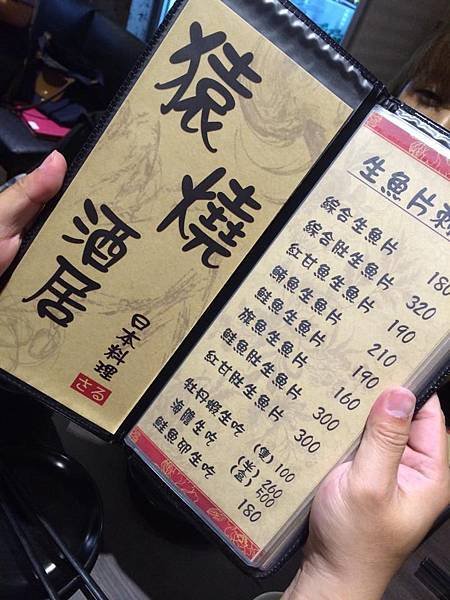 猿燒
酒居
日本料理
さる
生魚片刺
綜合生魚片 180
綜合肚生魚片 320
紅甘魚生魚片 190
鮪魚生魚片 210
鮭魚生魚片 190
旗魚生魚片 160
鮭魚肚生魚片 300
紅甘肚生魚片 300
牡丹蝦生吃 (隻) 100
生吃 (半) 260
500
生吃 180